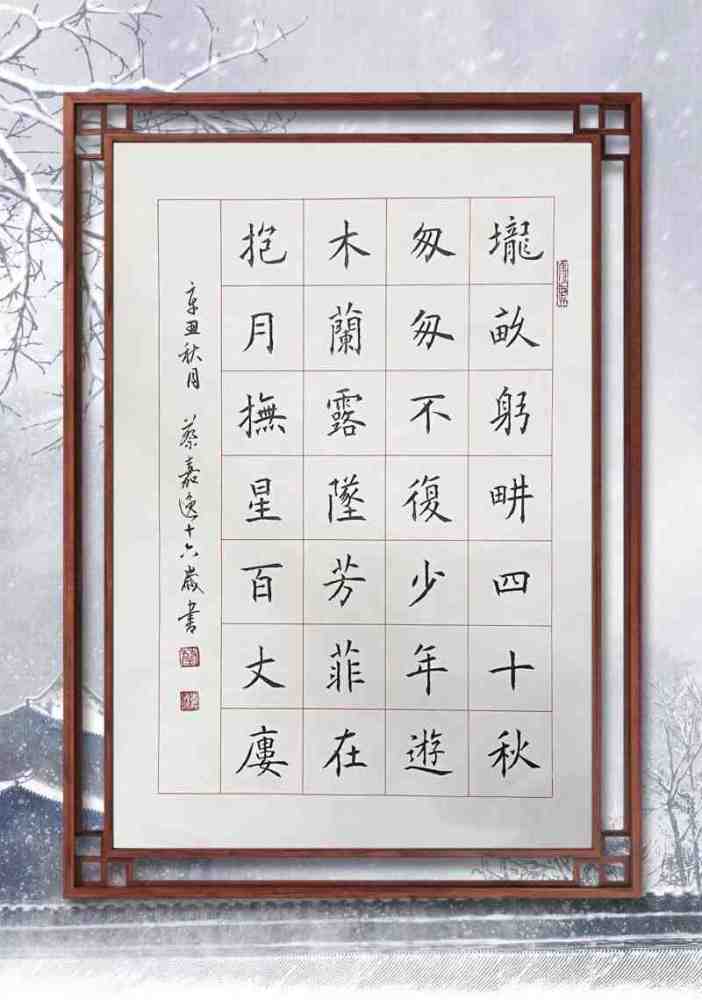 壠畝躬畊四十秋
匆匆不復少年遊
木蘭露墜芳菲在
抱月撫星百丈廔
辛丑秋月 蔡嘉逸十六歲書